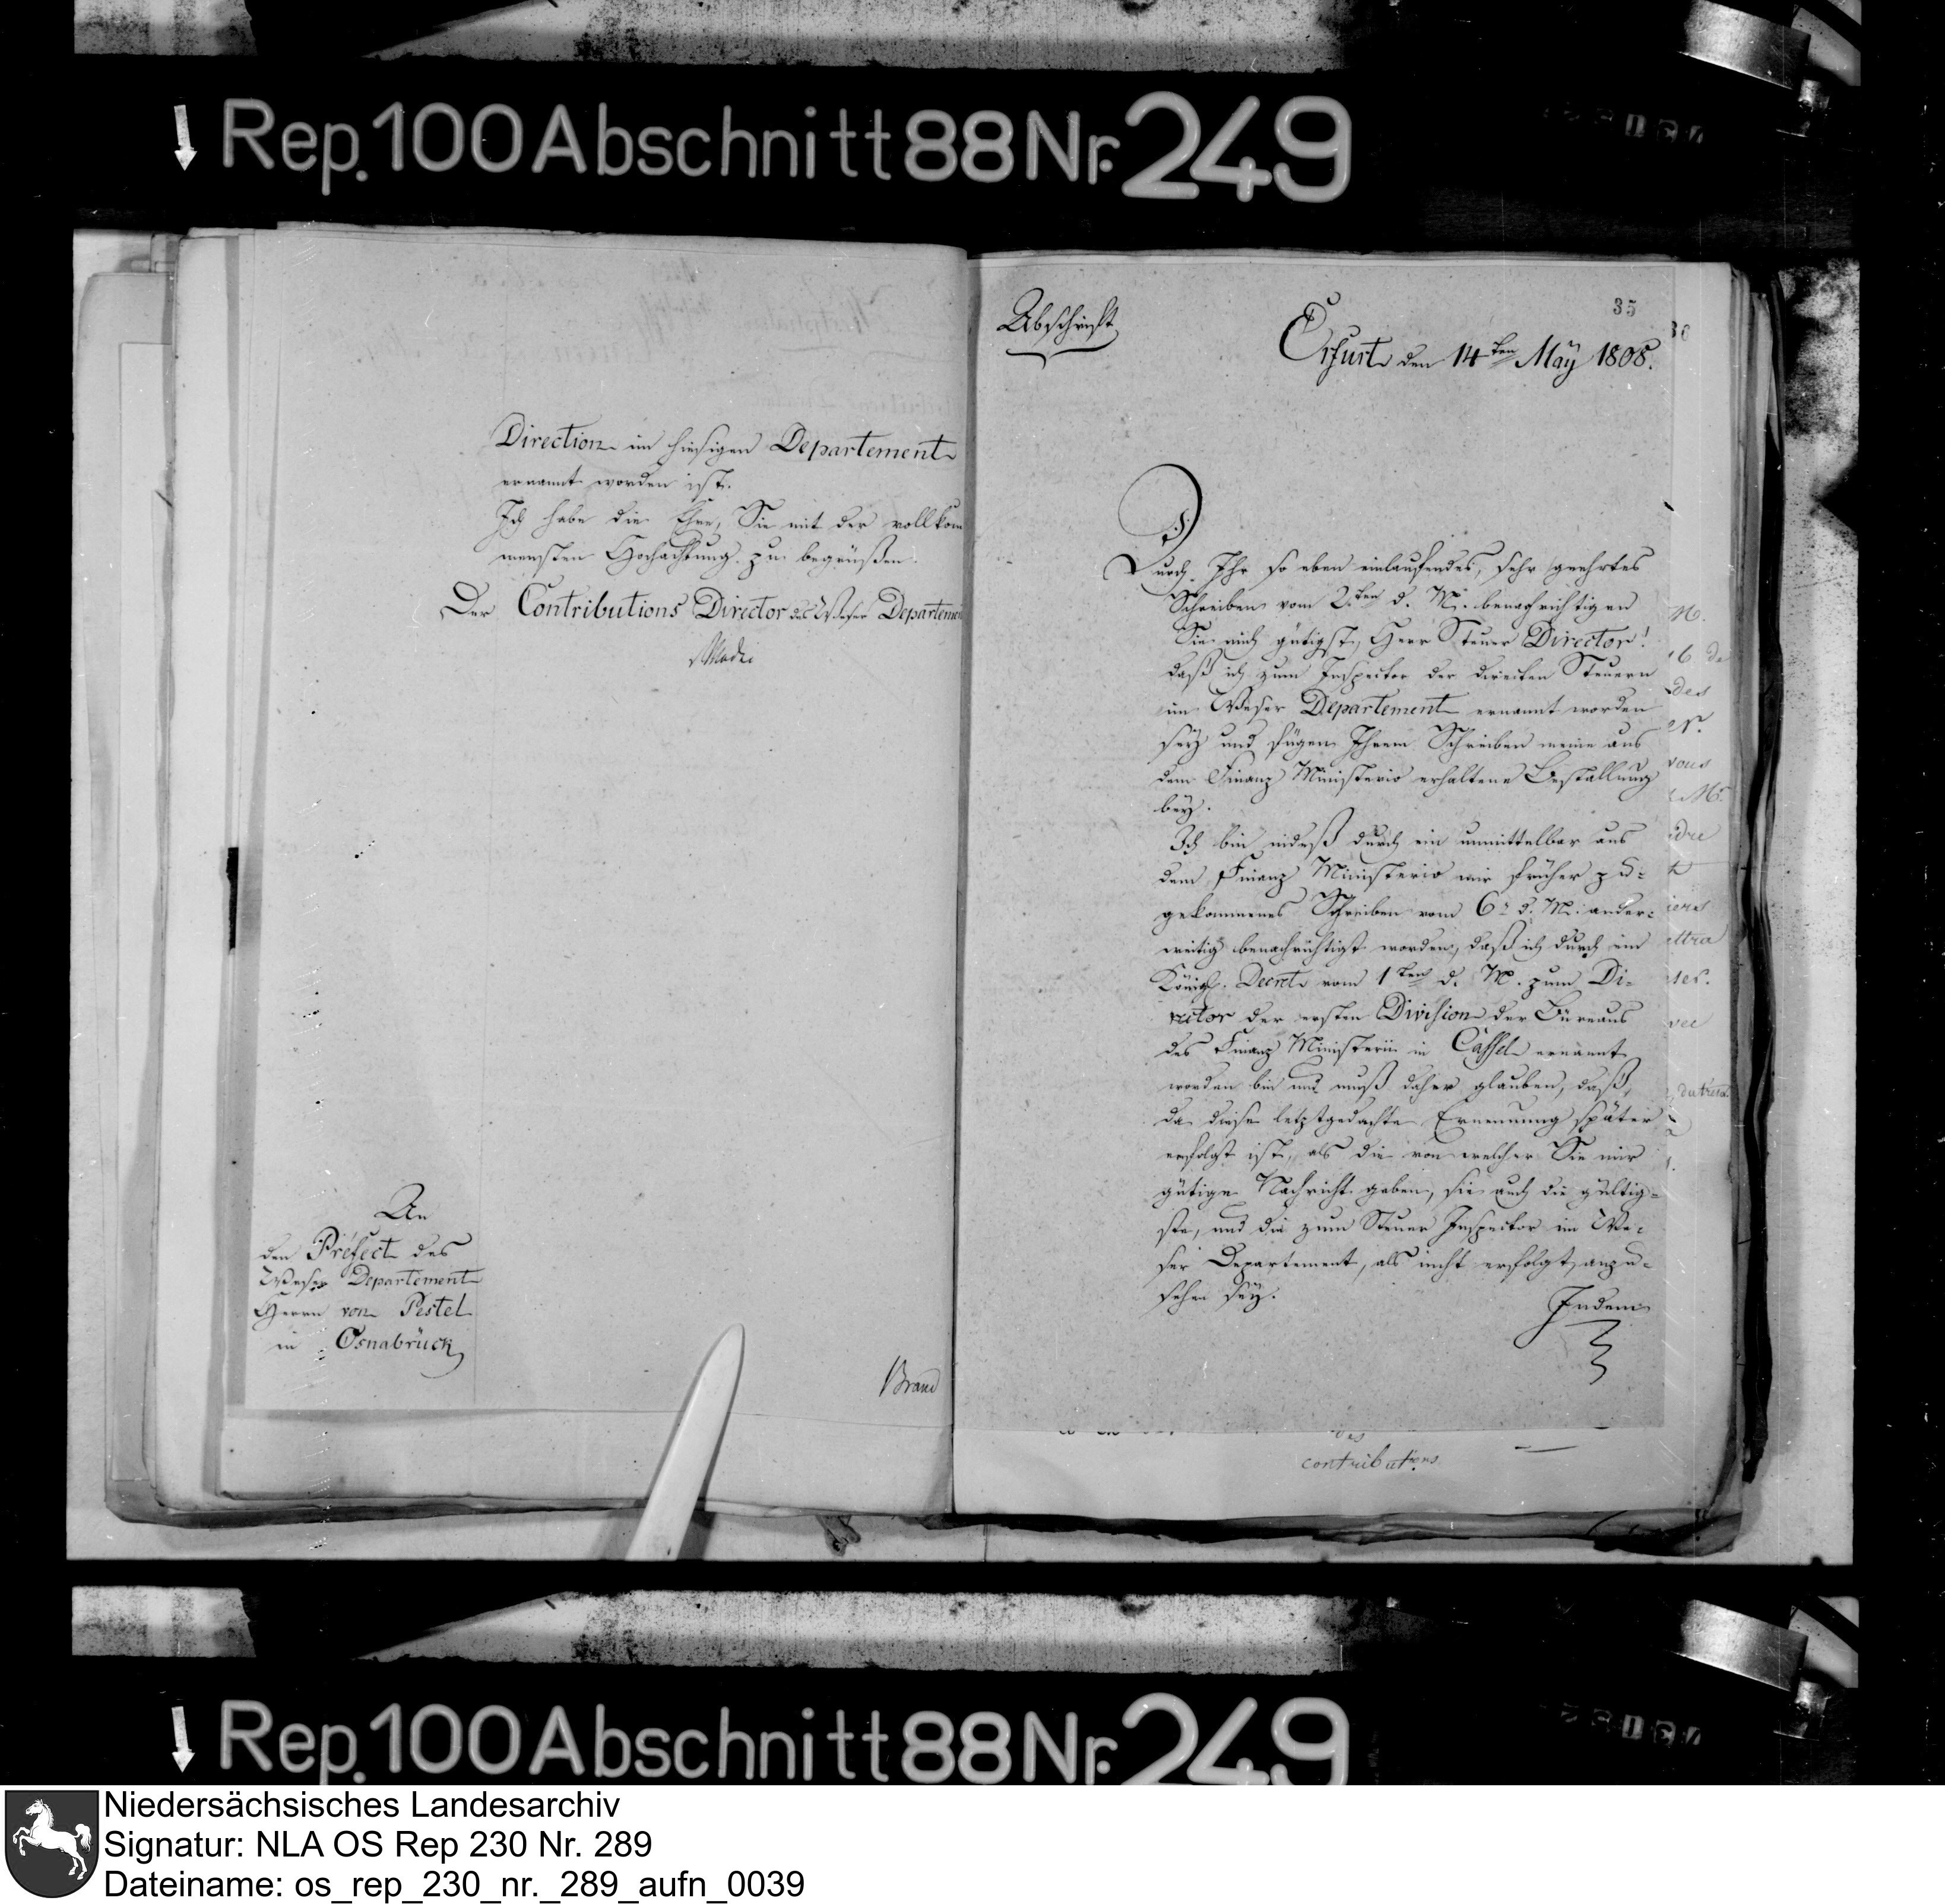 Rep. 100 Abschnitt 88 Nr. 249
Direction im hiesigen Departement
ernannt worden ist.
Ich habe die Ehre, Sie mit der vollkom
mensten Hochachtung zu begrüßen.
Der Contributions Director des Weser Departement
An
den Préfect des
Weser Departement
Herrn von Pestel
in Osnabrück
35
Abschrift
Erfurt den 14ten May 1808.
Durch Ihr so eben einlaufendes, sehr geehrtes
Schreiben vom 2ten d. M. benachrichtigen
Sie mich gütigst, Herr Steuer Director!
daß ich zum Inspector der direkten Steuern
im Weser Departement ernannt worden
sey und fügen Ihrem Schreiben meine aus
dem Finanz Ministerio erhaltene Bestallung
bey.
Ich bin indeß durch ein unmittelbar aus
dem Finanz Ministerio mir früher zu-
gekommenes Schreiben vom 6n d. M. ander-
weitig benachrichtigt worden, daß ich durch ein
Königl. Decret vom 1ten d. M. zum Di-
rector der ersten Division der Büreaus
des Finanz Ministerii in Cassel ernannt
worden bin und muß daher glauben, daß,
da diese letztgedachte Ernennung später
erfolgt ist, als die von welcher Sie mir
gütige Nachricht gaben, sie auch die gültig-
ste, und die zum Steuer Inspector im We-
ser Departement, als nicht erfolgt, anzu-
sehen sey.
Indem
des
contributions
Rep. 100 Abschnitt 88 Nr. 249
Niedersächsisches Landesarchiv
Signatur: NLA OS Rep 230 Nr. 289
Dateiname: os_rep_230_nr._289_aufn_0039